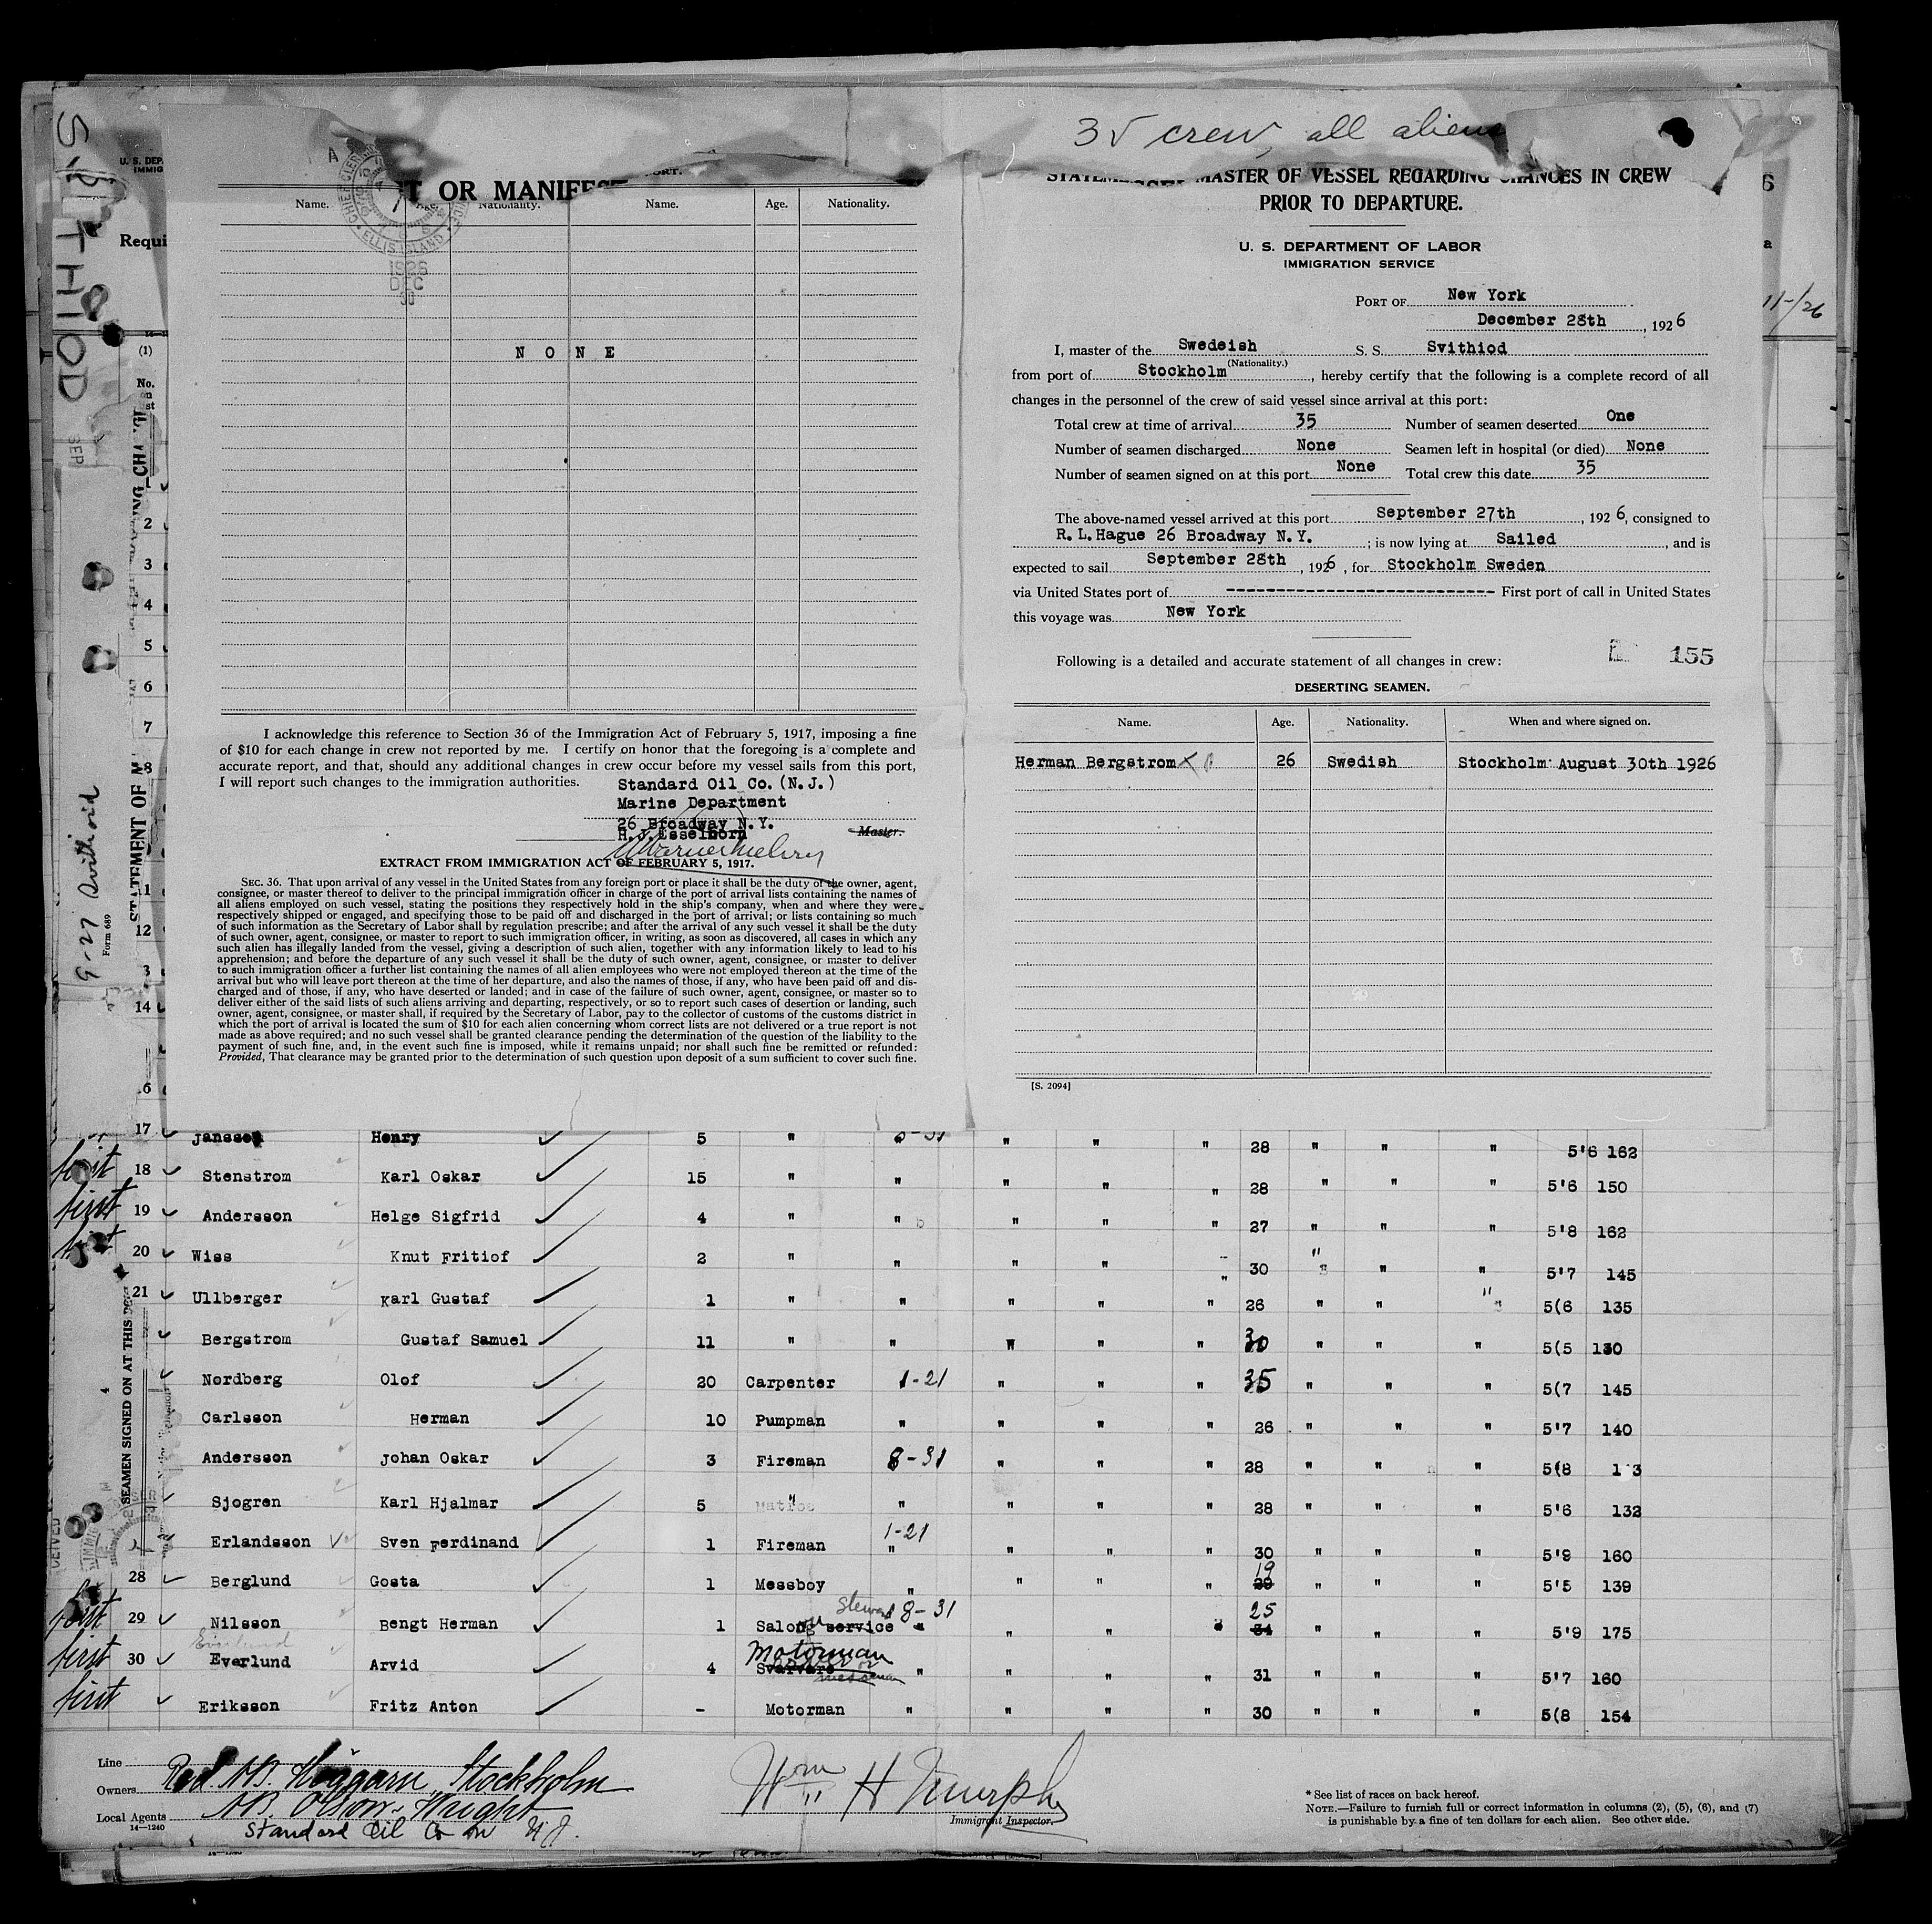 35 crew, all aliens
SVITHIOD
U. S. DEP
IMMIG
Requi
T OR MANIFEST
ORT.
Name. Age. Nationality. Name. Age. Nationality.
CHIEF CLER
ELLIS ISLAND
1926
DEC
30
N O N E
I acknowledge this reference to Section 36 of the Immigration Act of February 5, 1917, imposing a fine
of $10 for each change in crew not reported by me. I certify on honor that the foregoing is a complete and
accurate report, and that, should any additional changes in crew occur before my vessel sails from this port,
I will report such changes to the immigration authorities.
Standard Oil Co. (N.J.)
Marine Department
26 Broadway N.Y.
H. J. Esselborn
Master.
EXTRACT FROM IMMIGRATION ACT OF FEBRUARY 5, 1917.
SEC. 36. That upon arrival of any vessel in the United States from any foreign port or place it shall be the duty of the owner, agent,
consignee, or master thereof to deliver to the principal immigration officer in charge of the port of arrival lists containing the names of
all aliens employed on such vessel, stating the positions they respectively hold in the ship's company, when and where they were
respectively shipped or engaged, and specifying those to be paid off and discharged in the port of arrival; or lists containing so much
of such information as the Secretary of Labor shall by regulation prescribe; and after the arrival of any such vessel it shall be the duty
of such owner, agent, consignee, or master to report to such immigration officer, in writing, as soon as discovered, all cases in which any
such alien has illegally landed from the vessel, giving a description of such alien, together with any information likely to lead to his
apprehension; and before the departure of any such vessel it shall be the duty of such owner, agent, consignee, or master to deliver
to such immigration officer a further list containing the names of all alien employees who were not employed thereon at the time of the
arrival but who will leave port thereon at the time of her departure, and also the names of those, if any, who have been paid off and dis-
charged and of those, if any, who have deserted or landed; and in case of the failure of such owner, agent, consignee, or master so to
deliver either of the said lists of such aliens arriving and departing, respectively, or so to report such cases of desertion or landing, such
owner, agent, consignee, or master shall, if required by the Secretary of Labor, pay to the collector of customs of the customs district in
which the port of arrival is located the sum of $10 for each alien concerning whom correct lists are not delivered or a true report is not
made as above required; and no such vessel shall be granted clearance pending the determination of the question of the liability to the
payment of such fine, and, in the event such fine is imposed, while it remains unpaid; nor shall such fine be remitted or refunded:
Provided, That clearance may be granted prior to the determination of such question upon deposit of a sum sufficient to cover such fine.
MASTER OF VESSEL REGARDING CHANGES IN CREW
PRIOR TO DEPARTURE.
U. S. DEPARTMENT OF LABOR
IMMIGRATION SERVICE
PORT OF New York
December 28th, 1926
I, master of the Swedeish S. S. Svithiod
(Nationality.)
from port of Stockholm, hereby certify that the following is a complete record of all
changes in the personnel of the crew of said vessel since arrival at this port:
Total crew at time of arrival 35 Number of seamen deserted One
Number of seamen discharged None Seamen left in hospital (or died) None
Number of seamen signed on at this port None Total crew this date 35
The above-named vessel arrived at this port September 27th, 1926, consigned to
R. L. Hague 26 Broadway N. Y.; is now lying at Sailed, and is
expected to sail September 28th, 1926, for Stockholm Sweden
via United States port of ---------- First port of call in United States
this voyage was New York
Following is a detailed and accurate statement of all changes in crew:
155
DESERTING SEAMEN.
Name. Age. Nationality. When and where signed on.
Herman Bergstrom 26 Swedish Stockholm August 30th 1926
[S. 2094]
11-/26
9-27 Svithiod
Form 689
STATEMENT OF M
SEAMEN SIGNED ON AT THIS
(1)
No.
2
3
4
5
6
7
8
11
12
3
14
16
17 Jansson Henry 5 " 8-31 " " " 28 " " " 5'6 162
first 18 Stenstrom Karl Oskar 15 " " " " " 28 " " " 5'6 150
first 19 Andersson Helge Sigfrid 4 " " " " " 27 " " " 5'8 162
first 20 Wiss Knut Fritiof 2 " " " " " 30 " " " 5'7 145
21 Ullberger Karl Gustaf 1 " " " " " 26 " " " 5(6 135
Bergstrom Gustaf Samuel 11 " " " " " 30 " " " 5(5 130
Nordberg Olof 20 Carpenter 1-21 " " " 35 " " " 5(7 145
Carlsson Herman 10 Pumpman " " " " 26 " " " 5'7 140
Andersson Johan Oskar 3 Fireman 8-31 " " " 28 " " " 5(8 1 3
Sjogren Karl Hjalmar 5 " " " " " 28 " " " 5'6 132
Erlandsson Sven Ferdinand 1 Fireman 1-21 " " " " 30 " " " 5'9 160
28 Berglund Gosta 1 Messboy " " " " 19 " " " 5'5 139
first 29 Nilsson Bengt Herman 1 Salong service Steward 8-31 " " " 25 34 " " " 5'9 175
first 30 Everlund Arvid 4 Motorman messman " " " " 31 " " " 5'7 160
first Eriksson Fritz Anton - Motorman " " " " 30 " " " 5(8 154
Line
Owners Red. AB. Stockholm
Local Agents AB. Olson & Wright
14—1240
Standard Oil Co N. J.
Wm H Murphy
Immigrant Inspector.
* See list of races on back hereof.
NOTE.—Failure to furnish full or correct information in columns (2), (5), (6), and (7)
is punishable by a fine of ten dollars for each alien. See other side.